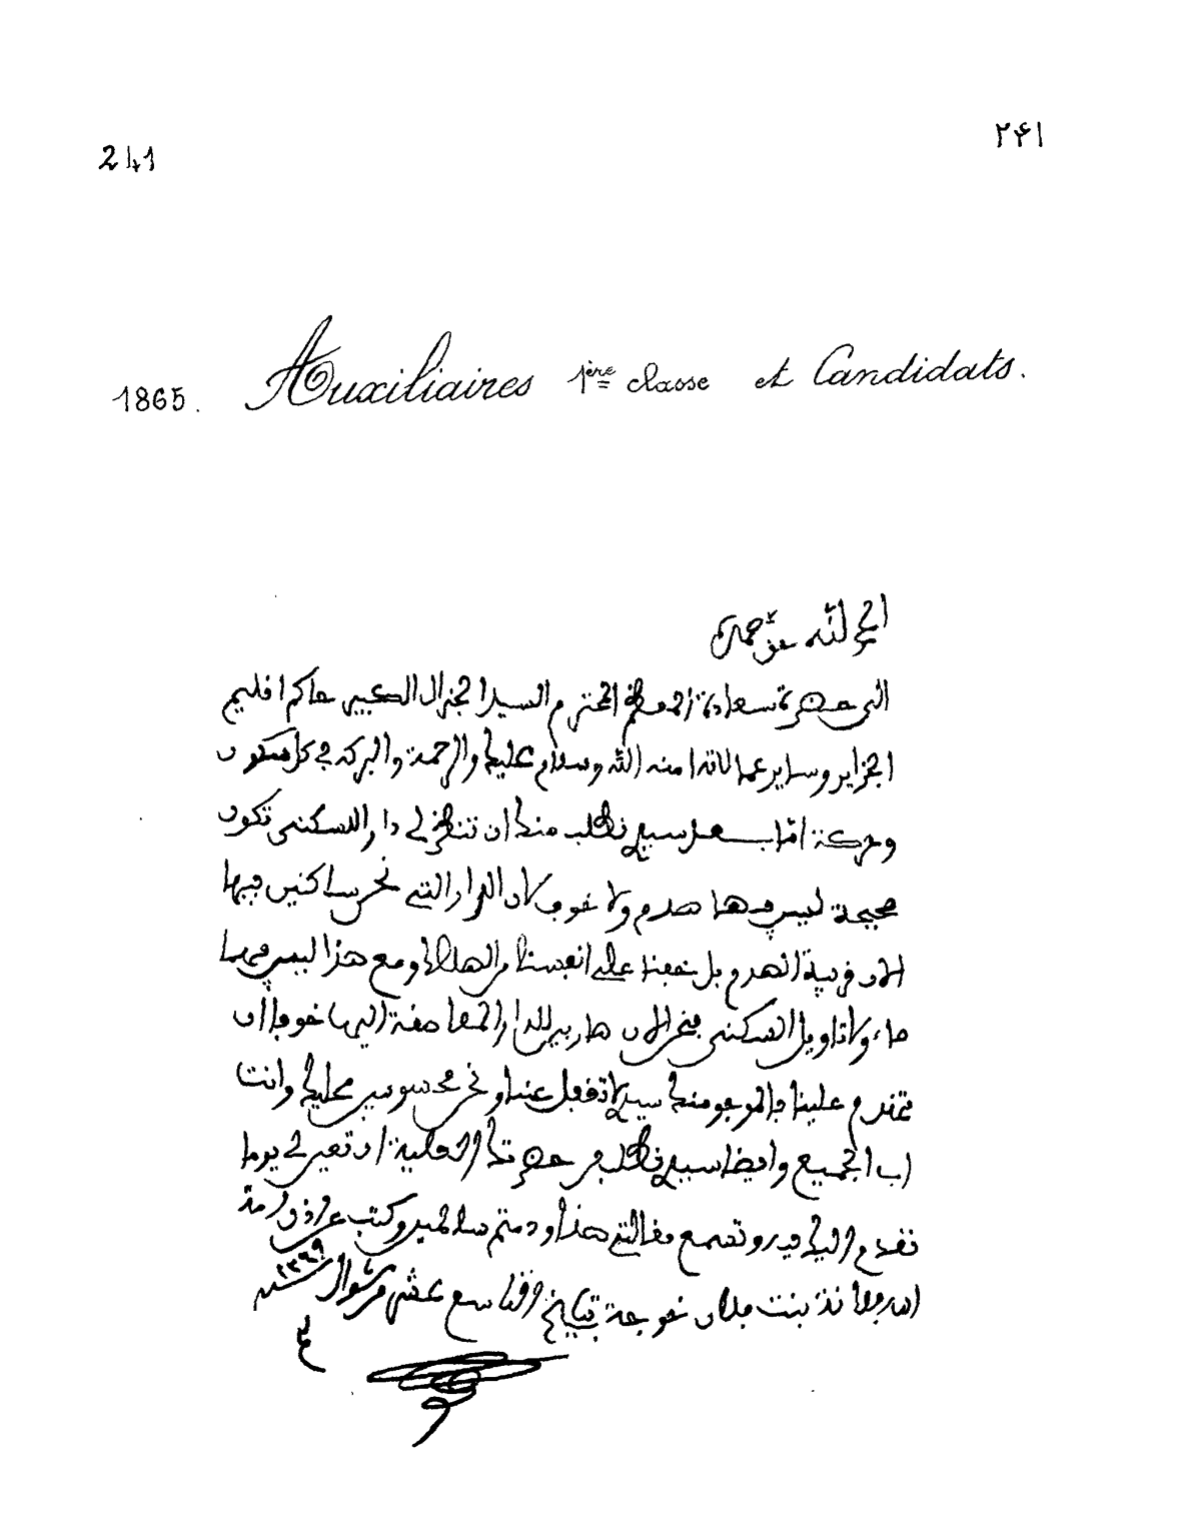 241
٢۴١
1865. Auxiliaires 1ère classe et Candidats.
الحمد لله حق حمده
الى حضرة سعادة المعظم المحترم السيد الجنرال الكبير حاكم اقليم
الجزاير وساير عمالاته امنه الله وسلام عليك والرحمة والبركة في كل سكون
وحركة اما بعد سيدي نطلب منك ان تنظر لي دار للسكنى تكون
صحيحة ليس فيها هدم ولا خوف لان الدار التي نحن ساكنين فيها
الان قريبة الهدم بل خفنا على انفسنا من الهلاك ومع هذا ليس فيها
ماء ولا تاويل السكنى فنحن الان هاربين للدار الملاصقة اليها خوفا ان
تنهدم علينا فالمرجو منك سيدي لا تغفل عنا ونحن محسوبين عليك وانت
اب الجميع وايضا سيدي نطلب من حضرتك العلية ان تعين لي يوما
نقدم اليك فيه وتسمع مقالتي هذا ودمتم سالمين وكتب عن اذن امة
الله بنت خوجة بتاريخ التاسع عشر من شوال سنة